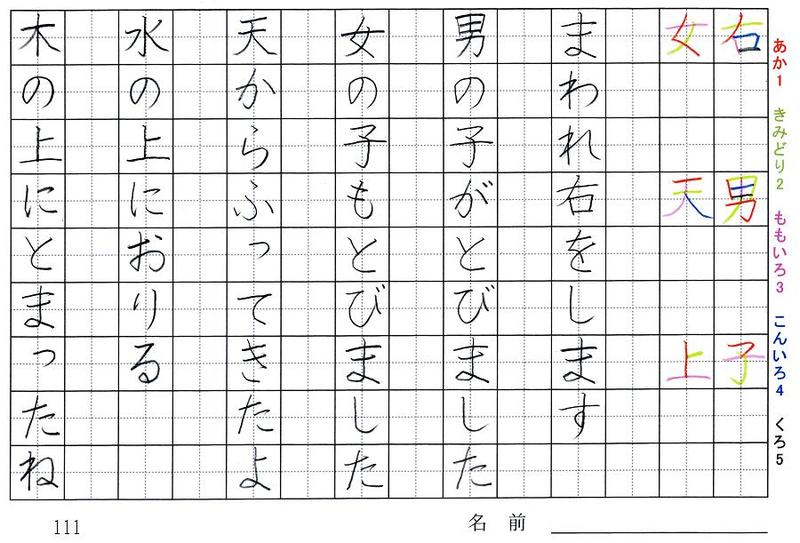 あか1 きみどり2 ももいろ3 こんいろ4 くろ5
右男子
女天上
まわれ右をします
男の子がとびました
女の子もとびました
天からふってきたよ
水の上におりる
木の上にとまったね
名前
111